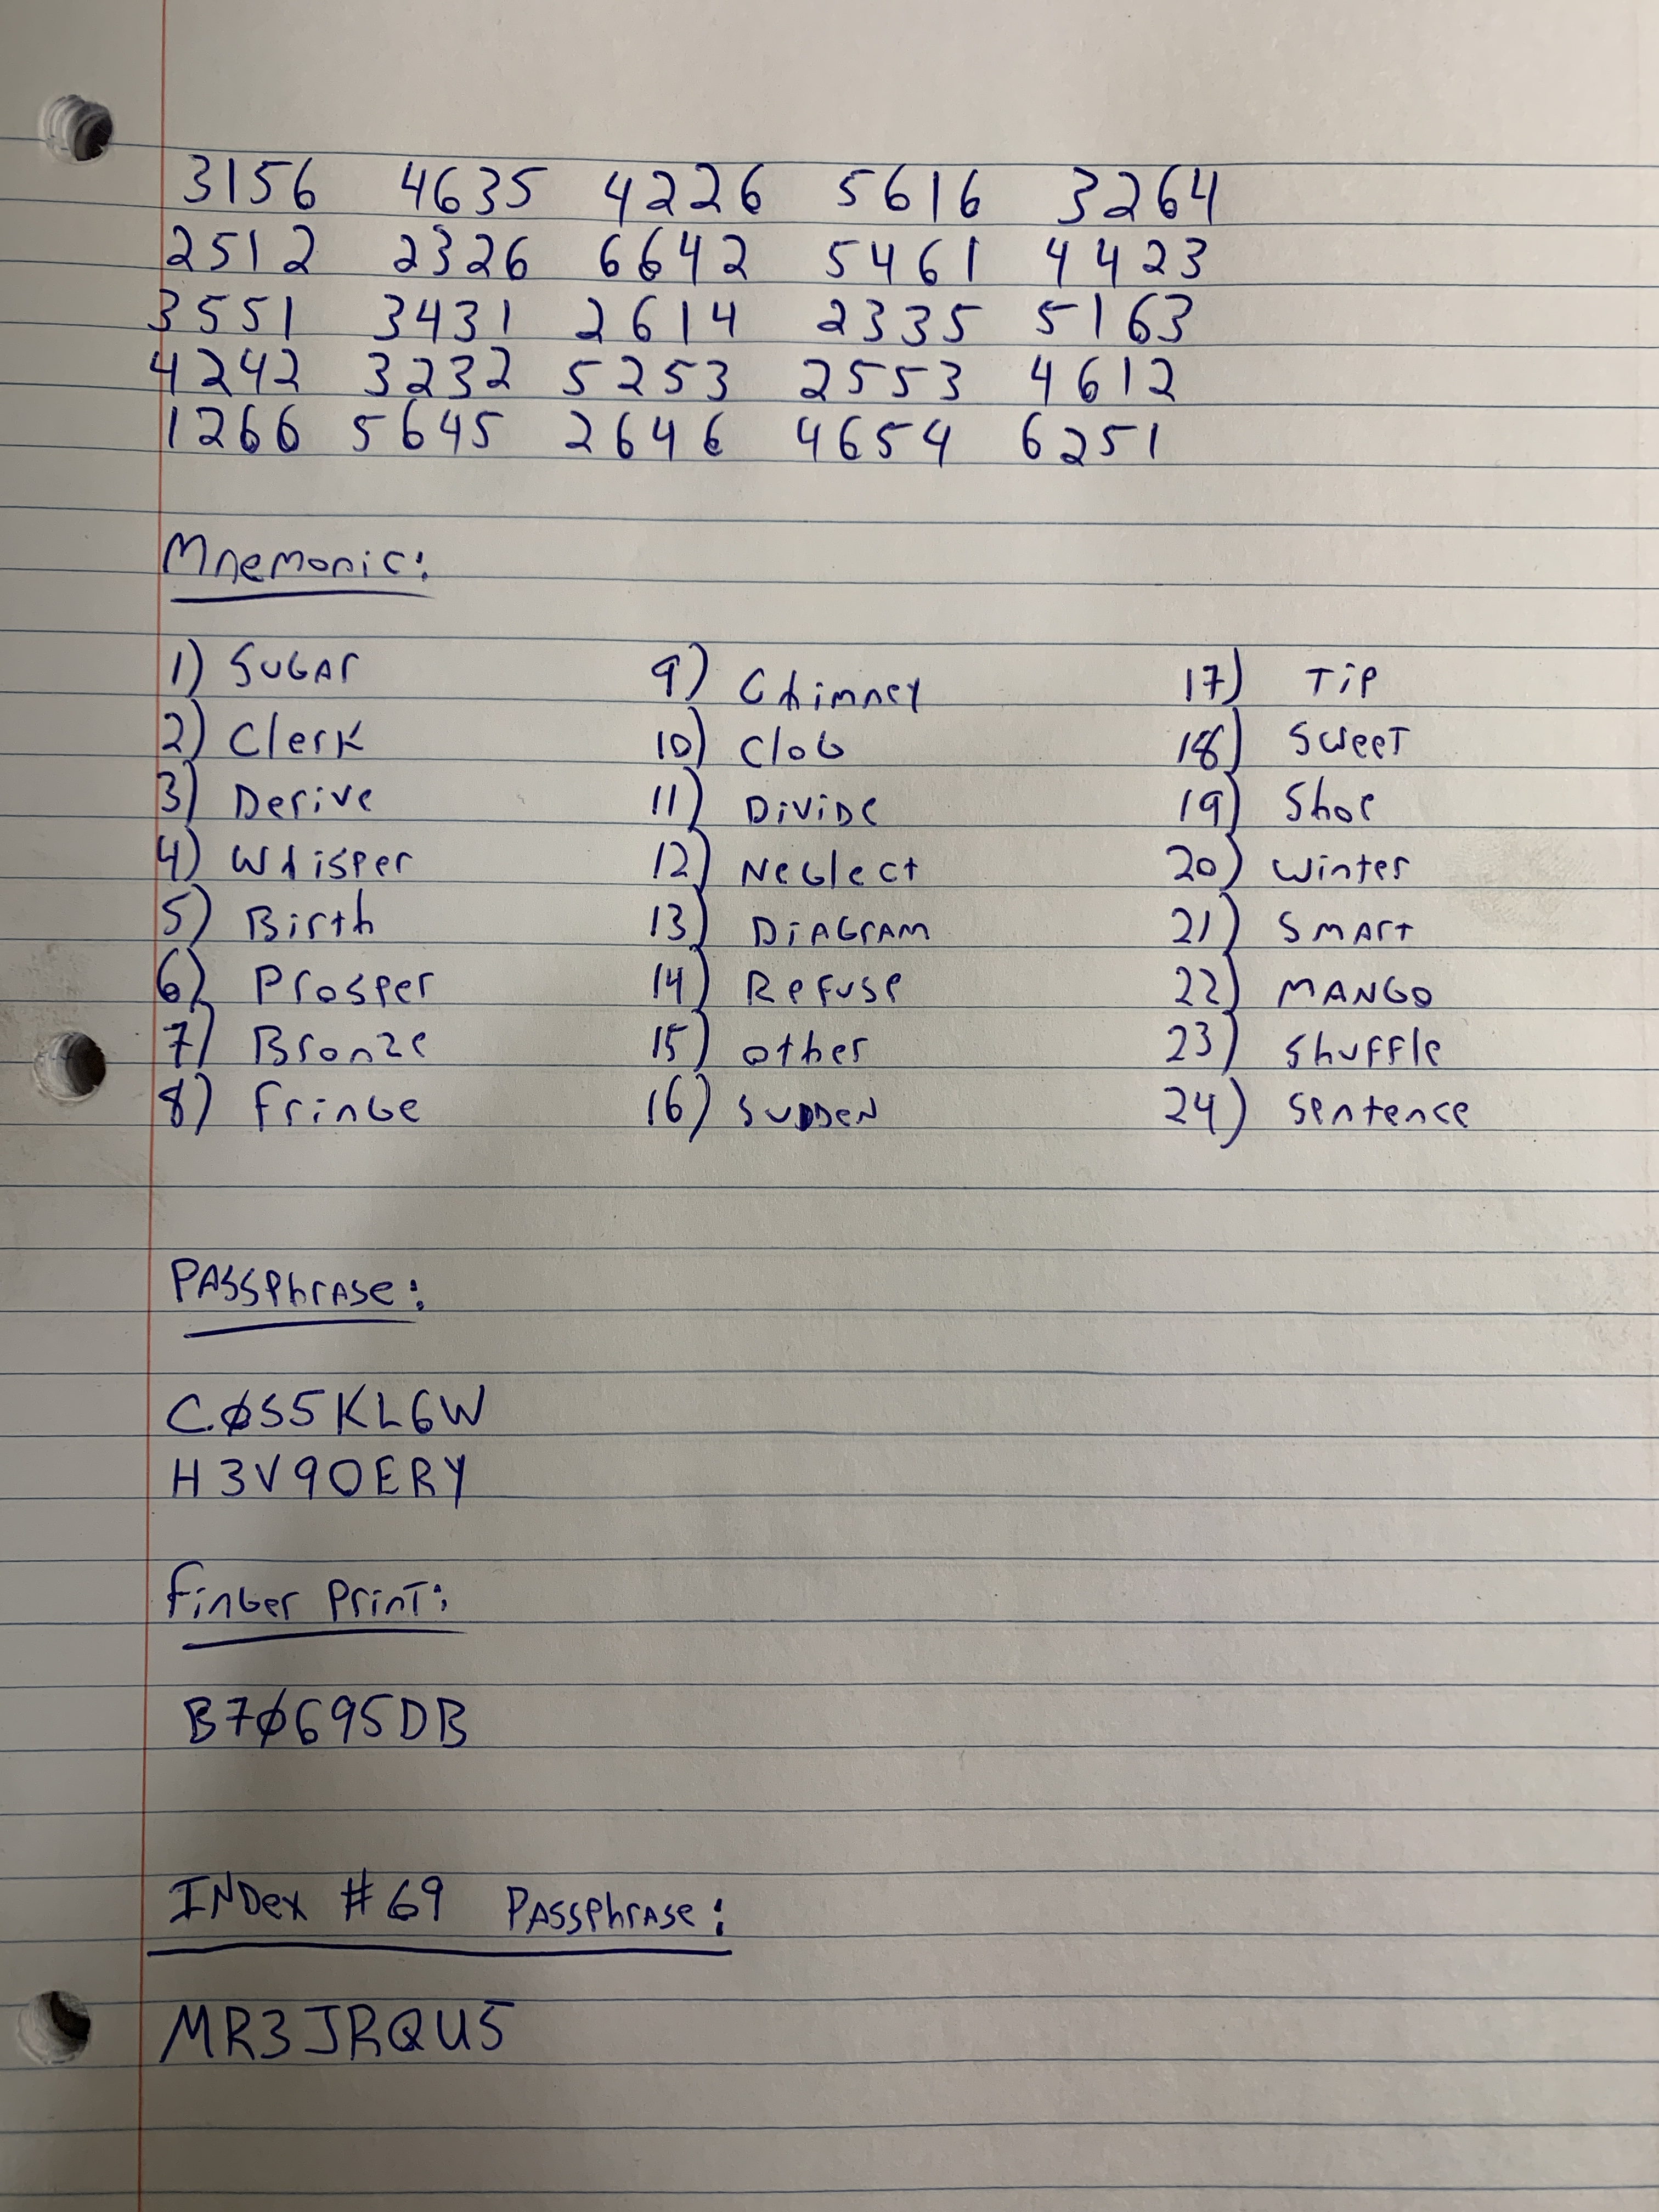 3156 4635 4226 5616 3264
2512 2326 6642 5461 4423
3551 3431 2614 2335 5163
4242 3232 5253 2553 4612
1266 5645 2646 4654 6251
Mnemonic:
1) Sugar 9) Chimney 17) Tip
2) Clerk 10) Clog 18) Sweet
3) Derive 11) Divide 19) Shoe
4) Whisper 12) Neglect 20) Winter
5) Birth 13) Diagram 21) Smart
6) Prosper 14) Refuse 22) MANGO
7) Bronze 15) other 23) Shuffle
8) Fringe 16) Sudden 24) Sentence
Passphrase:
CØS5KL6W
H3V9OERY
Finger Print:
B7Ø695DB
INDex #69 Passphrase:
MR3JRQU5